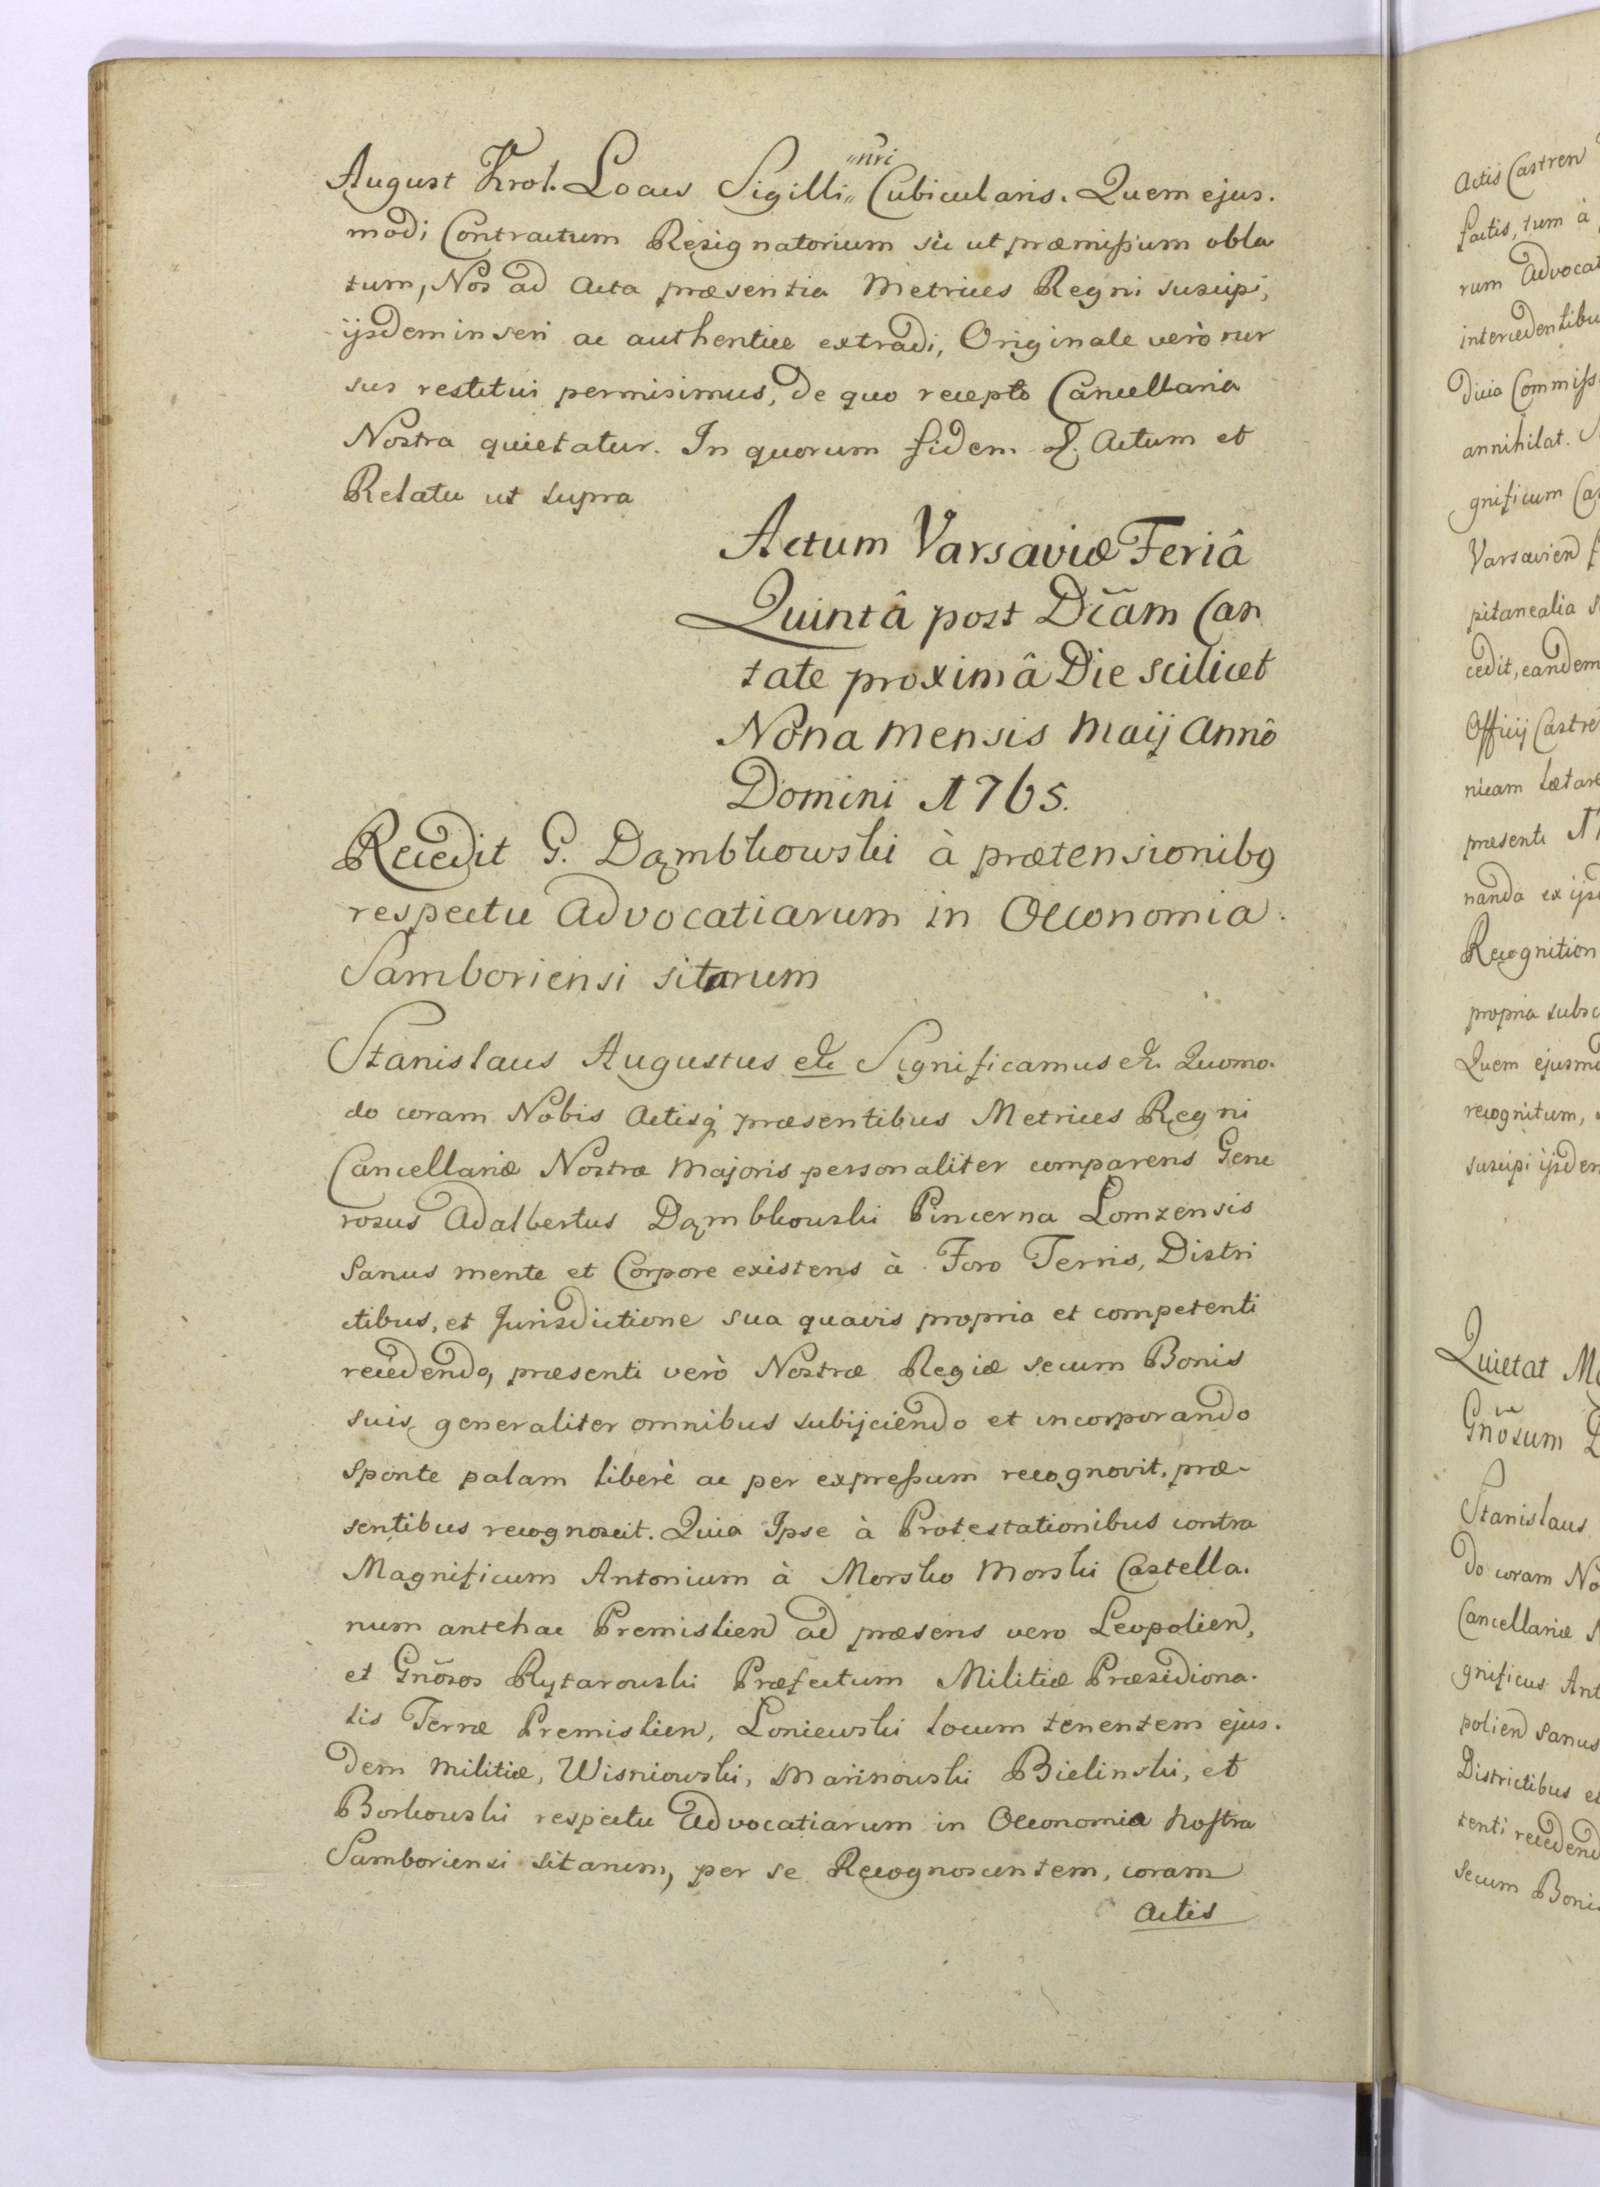 August Krol. Locus Sigilli „nri„ Cubicularis. Quem ejus.
modi Contractum Resignatorium sic ut præmissum obla
tum, Nos ad Acta præsentia Metrices Regni suscipi,
ijsdem inseri ac authentice extradi, Originale verò rur
sus restitui permisimus, de quo recepto Cancellaria
Nostra quietatur. In quorum fidem &. Actum et
Relatu ut supra
Actum Varsaviæ Feriâ
Quintâ post Dnĩcam Can
tate proximâ Die scilicet
Nona Mensis Maij Annô
Domini 1765.
Recedit G. Dąmbkowski à prætensionibꝰ
respectu Advocatiarum in Oeconomia
Samboriensi sitarum
Stanislaus Augustus etc Significamus etc. Quomo.
do coram Nobis Actisq præsentibus Metrices Regni
Cancellariæ Nostræ Majoris personaliter comparens Gene
rosus Adalbertus Dąmbkowski Pincerna Lomzensis
Sanus mente et Corpore existens à Foro Terris, Distri
ctibus, et Jurisdictione sua quavis propria et competenti
recedendo, præsenti verò Nostræ Regiæ secum Bonis
suis generaliter omnibus subijciendo et incorporando
Sponte palam liberè ac per expressum recognovit, præ-
sentibus recognoscit. Quia Ipse à Protestationibus contra
Magnificum Antonium à Morsko Morski Castella.
num antehac Premislien ad præsens vero Leopolien,
et Gnõsos Rytarowski Præfectum Militiæ Præsidiona.
lis Terræ Premislien, Loniewski locum tenentem ejus.
dem Militiæ, Wisniowski, Marinowski Bielinski, et
Borkowski respectu Advocatiarum in Oeconomia Nostra
Samboriensi sitarum, per se Recognoscentem, coram
Actis
Actis Castren
factis, tum à
rum Advocat
intercedentibu
dicia Commiss
annihilat.
gnificum Ca
Varsavien
pitanealia
cedit, eandem
Officij Castre
nicam Lætare
præsenti
nanda ex ijsd
Recognition
propria subsc
Quem ejusmo
recognitum,
suscipi ijsdem
Quietat M
Gnõsum
Stanislaus
do coram No
Cancellariæ N
gnificus Ant
polien Sanus
Districtibus et
tenti recedend
secum Bonis